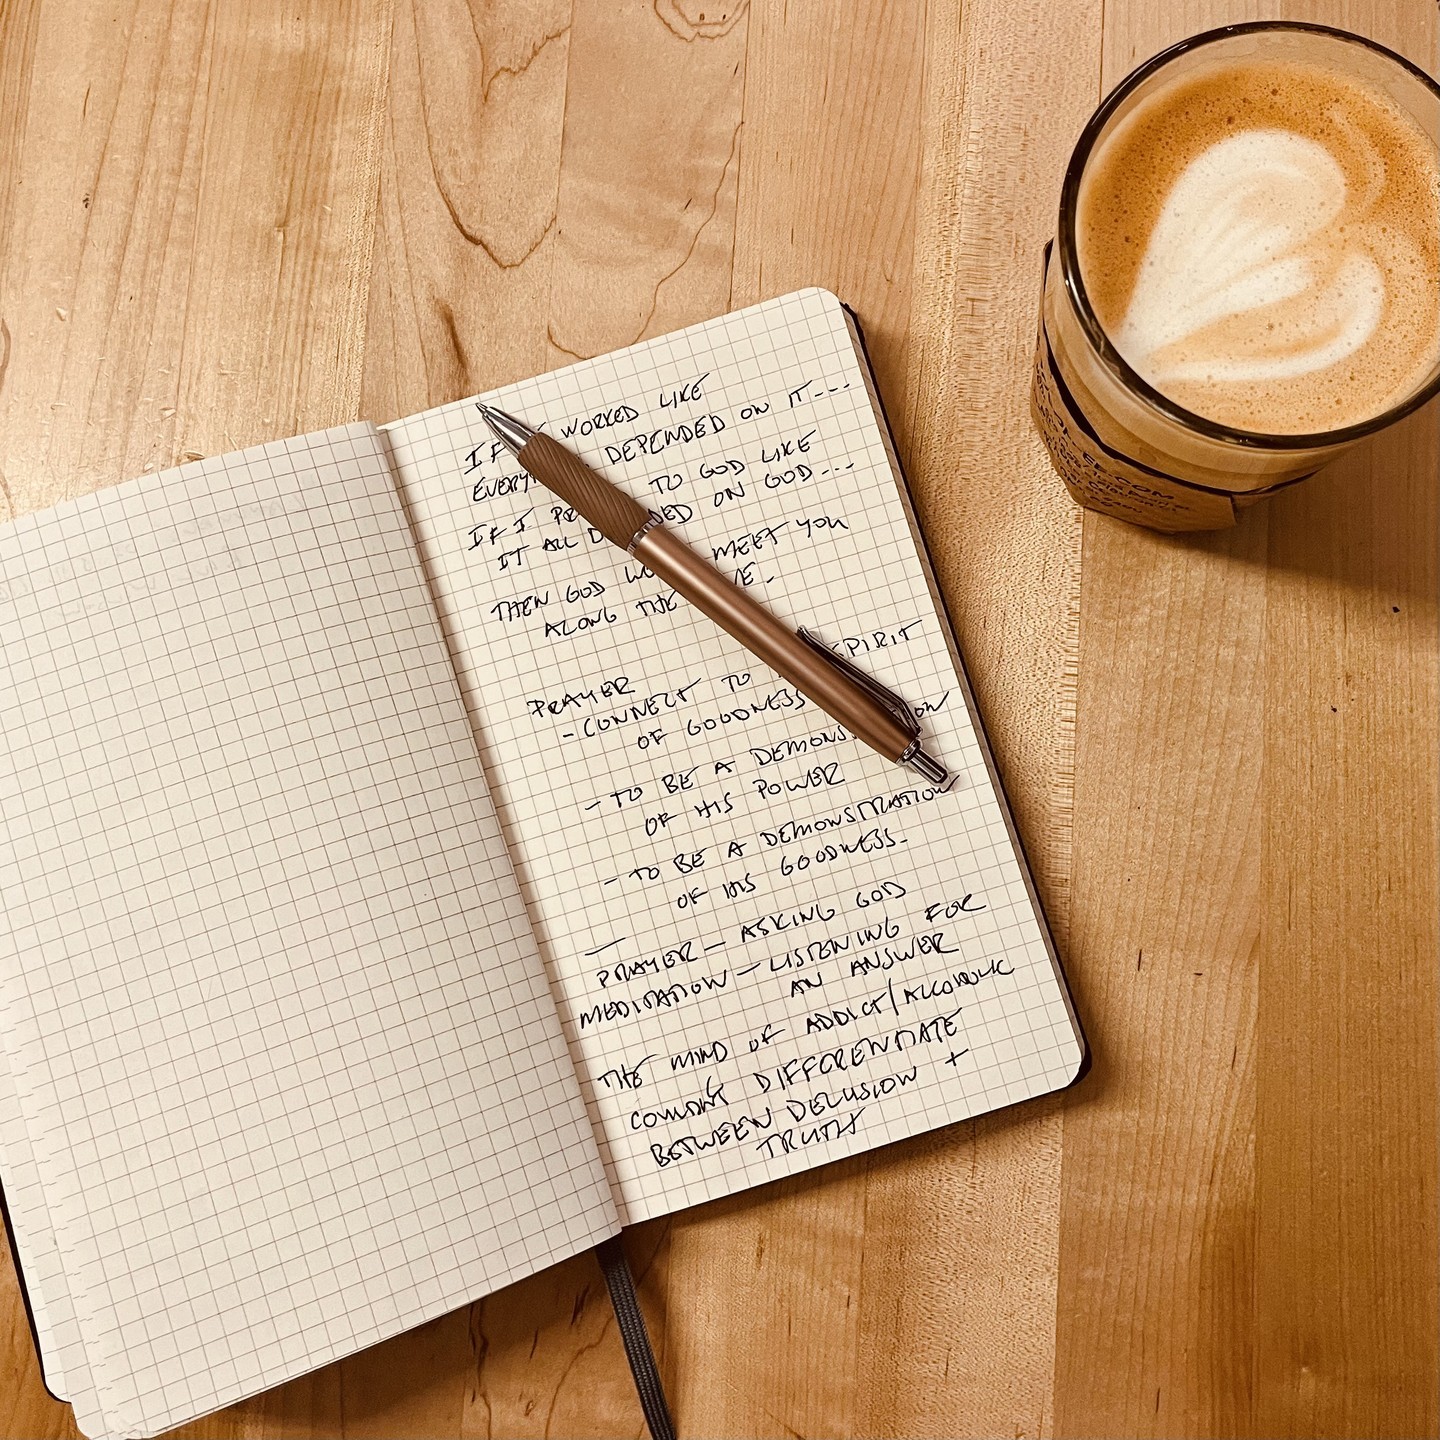 IF WORKED LIKE
EVERY DEPENDED ON IT---
IF I PR TO GOD LIKE
IT ALL D DED ON GOD---
THEN GOD WO MEET YOU
ALONG THE NE.
PRAYER
- CONNECT TO SPIRIT
OF GOODNESS
- TO BE A DEMONS ON
OF HIS POWER
- TO BE A DEMONSTRATION
OF HIS GOODNESS.
PRAYER - ASKING GOD
MEDITATION - LISTENING FOR
AN ANSWER
THE MIND OF ADDICT/ALCOHOLIC
COULDN'T DIFFERENTIATE
BETWEEN DELUSION +
TRUTH